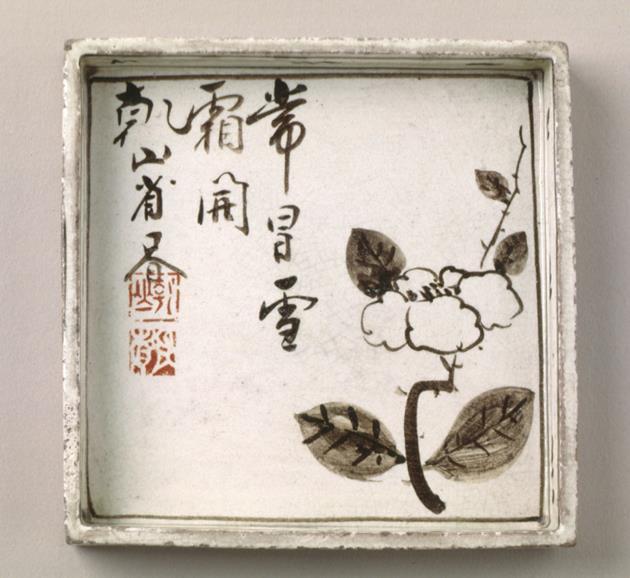 常冒雪
霜開
乾山省